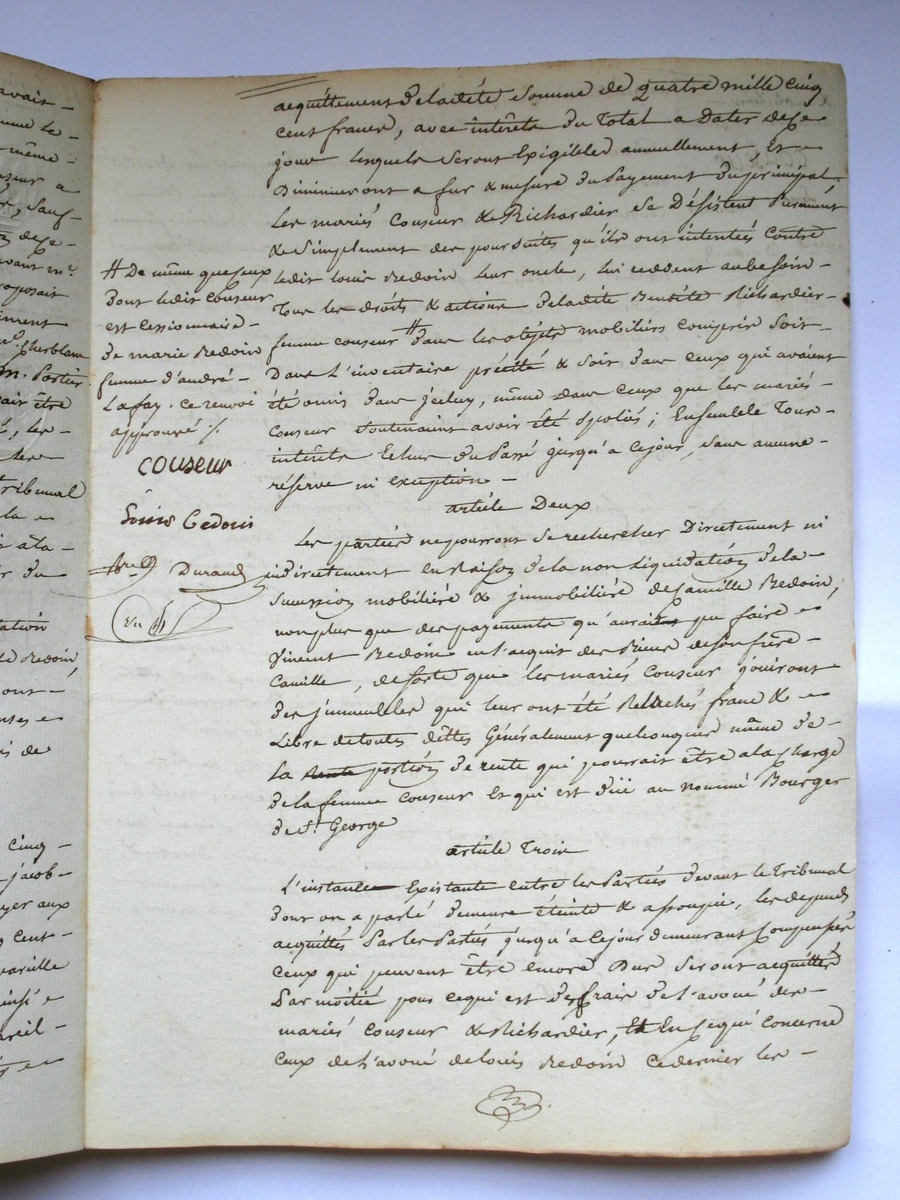 avait-
même-
acquittement de la dite somme de quatre mille cinq
cent francs, avec intérêts du total a dater de ce
jour lesquels seront exigibles annuellement, et
diminueront a fur & mesure du payement du principal.
Les mariés Couseur & Richardier se désistent purement
& simplement des poursuites qu'ils ont intentées contre
ledit Louis Redoin leur oncle, lui cedent au besoin
tous les droits & actions de la dite Benoite Richardier
femme Couseur # dans les objets mobiliers compris soit
dans l'inventaire précité & soit dans ceux qui avaient
été omis dans jceluy, même dans ceux que les mariés
Couseur soutenaient avoir été spoliés; Ensemble tous
intérêts echus du passé jusqu'a ce jour, sans aucune
réserve ni exception -
# De même que ceux
dont ledit Couseur
est cessionnaire
de marie Redoin
femme d'andré
Lafay. ce renvoi
approuvé ./.
Couseur
Louis Redoin
Durand
article Deux
Les parties ne pourront se rechercher directement ni
indirectement en raison de la non liquidation de la
sucession mobilière & jmmobilière de Camille Redoin,
non plus que des payements qu'aurait pu faire
Vincent Redoin en l'acquit des biens de son frère
Camille, de sorte que les mariés Couseur jouiront
des jmmeubles qui leur ont été relachés franc &
libre de toutes dettes généralement quelconques même de
la rente portion de rente qui pourrait être a la charge
de la femme Couseur et qui est düe au nommé Bourger
de St. George
article Trois
L'instance existante entre les parties devant le tribunal
dont on a parlé demeure éteinte & assoupie, les depends
acquittés par les parties jusqu'a ce jour demeurant compensés
ceux qui peuvent être encore dus seront acquittés
par moitié pour ce qui est des frais de l'avoué des
mariés Couseur & Richardier, Et en ce qui concerne
ceux de l'avoué de Louis Redoin ce dernier les